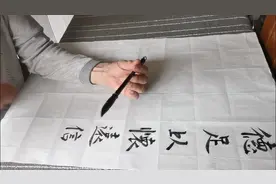 德足以懷遠信